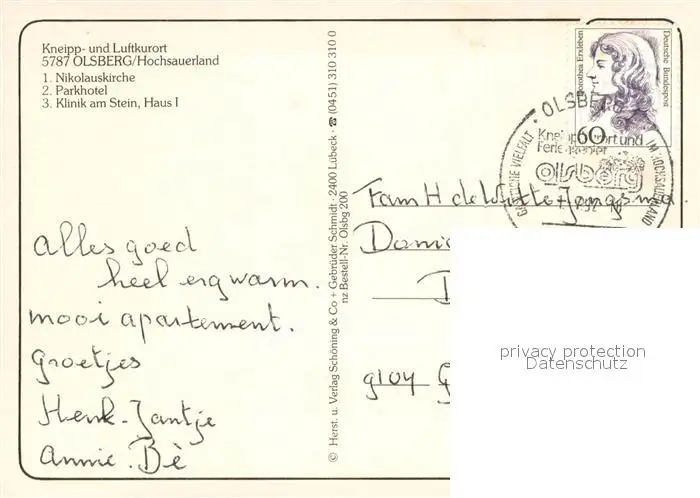 Kneipp- und Luftkurort
5787 OLSBERG/Hochsauerland
1. Nikolauskirche
2. Parkhotel
3. Klinik am Stein, Haus I
alles goed
heel erg warm.
mooi apartement.
groetjes
Henk-Jantje
annie. Bè
© Herst. u. Verlag Schöning & Co + Gebrüder Schmidt · 2400 Lübeck · ☎ (04 51) 310 310 0
nz Bestell-Nr. Olsbg 200
Dorothea Erxleben
Deutsche Bundespost
60
OLSBERG
Kneippkurort und
Ferienzentrum
olsberg
IM HOCHSAUERLAND
VIELFALT
Fam H de Witte-Jongsma.
9104 G
privacy protection
Datenschutz